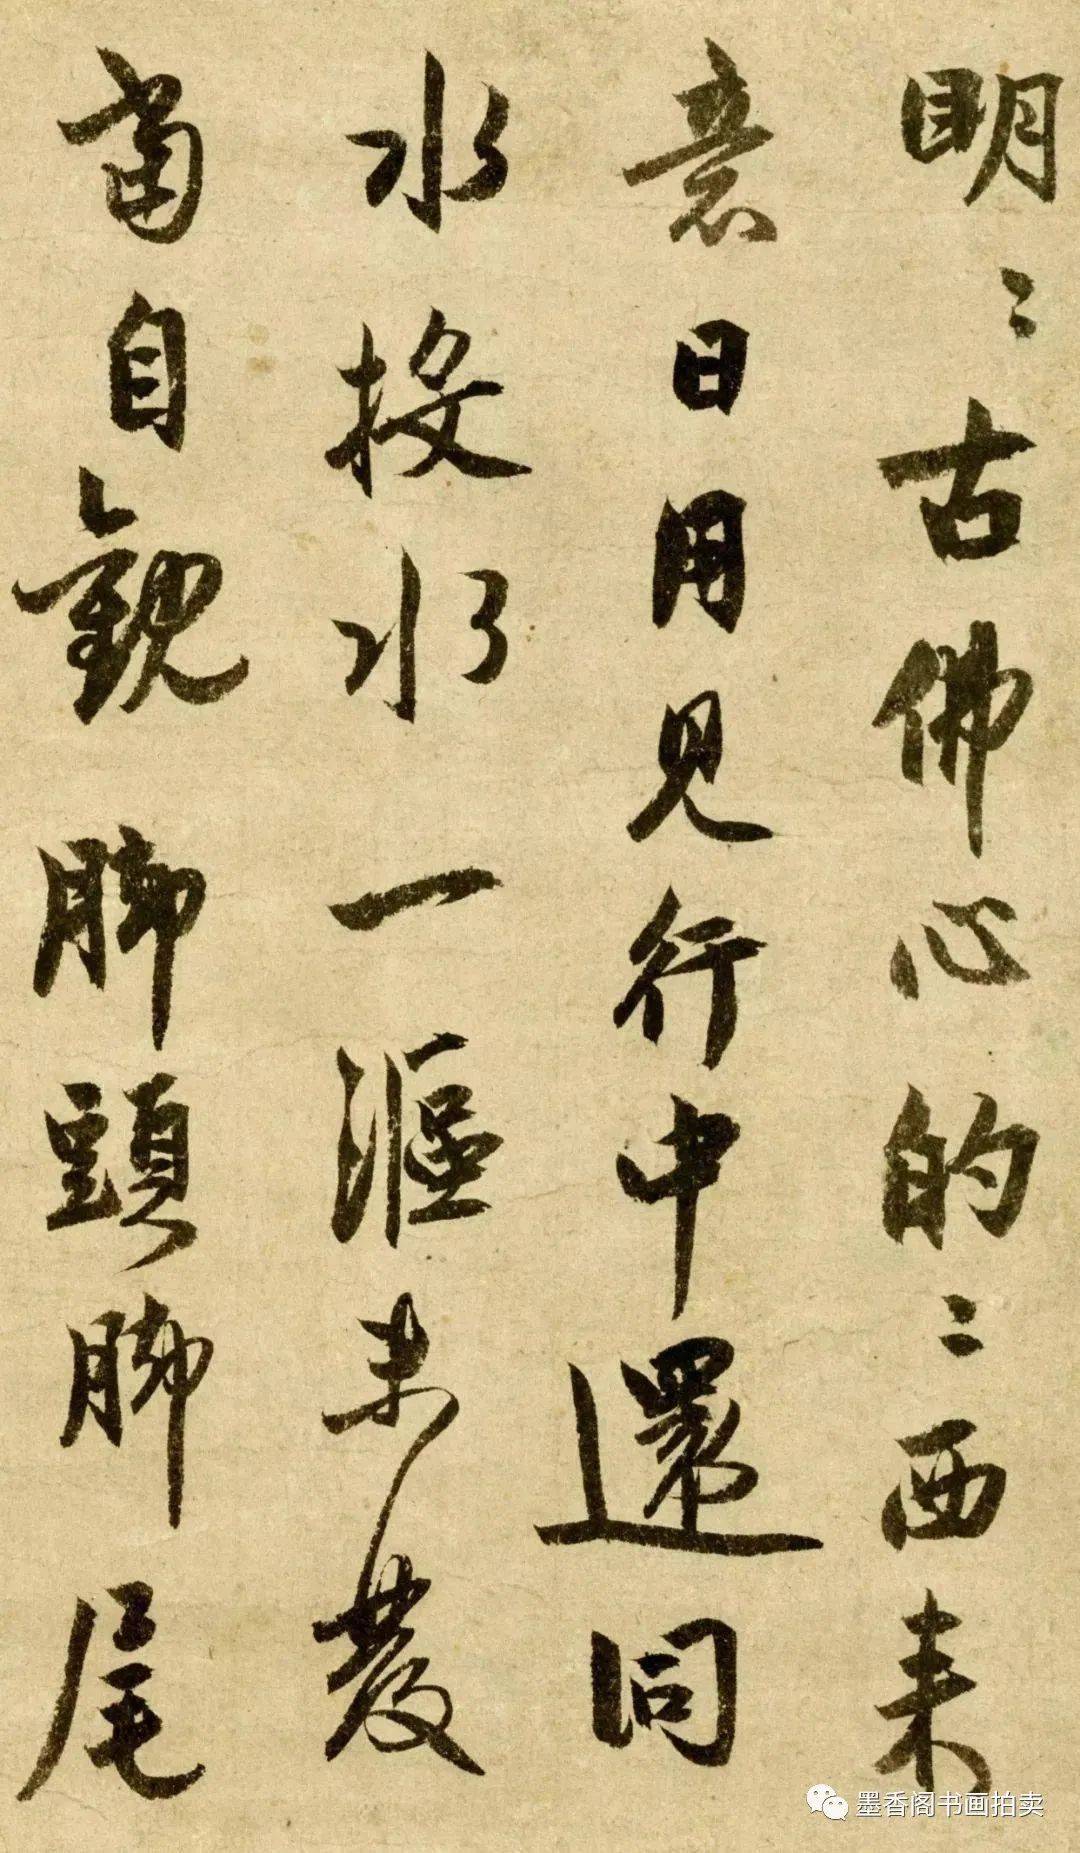 明〻古佛心的〻西来
意日用見行中還同
水投水一漚未發
當自觀脚頭脚尾
墨香阁书画拍卖